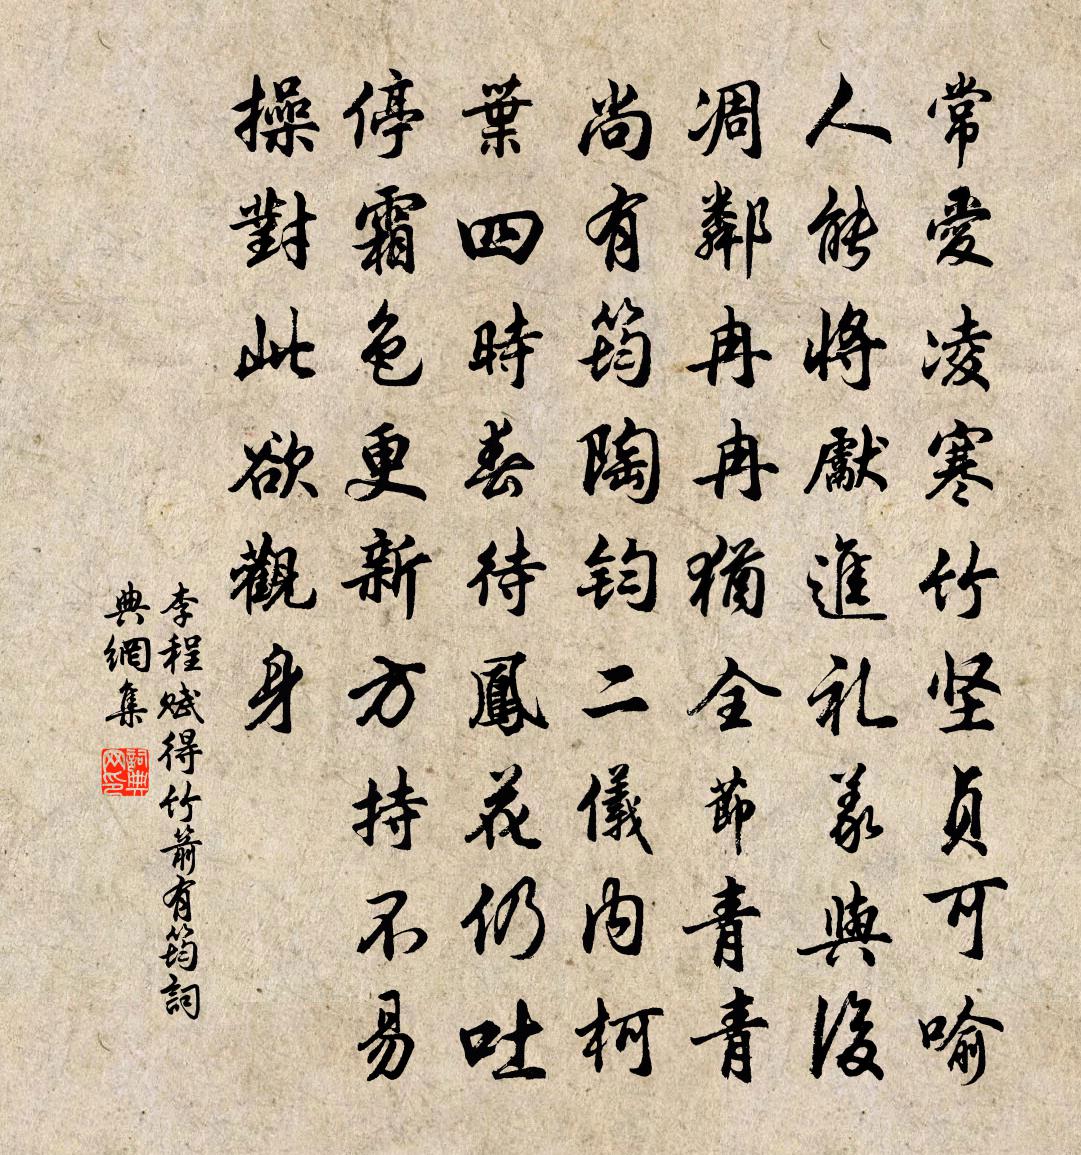 常愛凌寒竹坚貞可喻
人能將獻進礼義與後
凋鄰冉冉猶全節青青
尚有筠陶鈞二儀内柯
葉四時春待鳳花仍吐
停霜色更新方持不易
操對此欲觀身
李程賦得竹箭有筠詞
典網集
詞典
网印